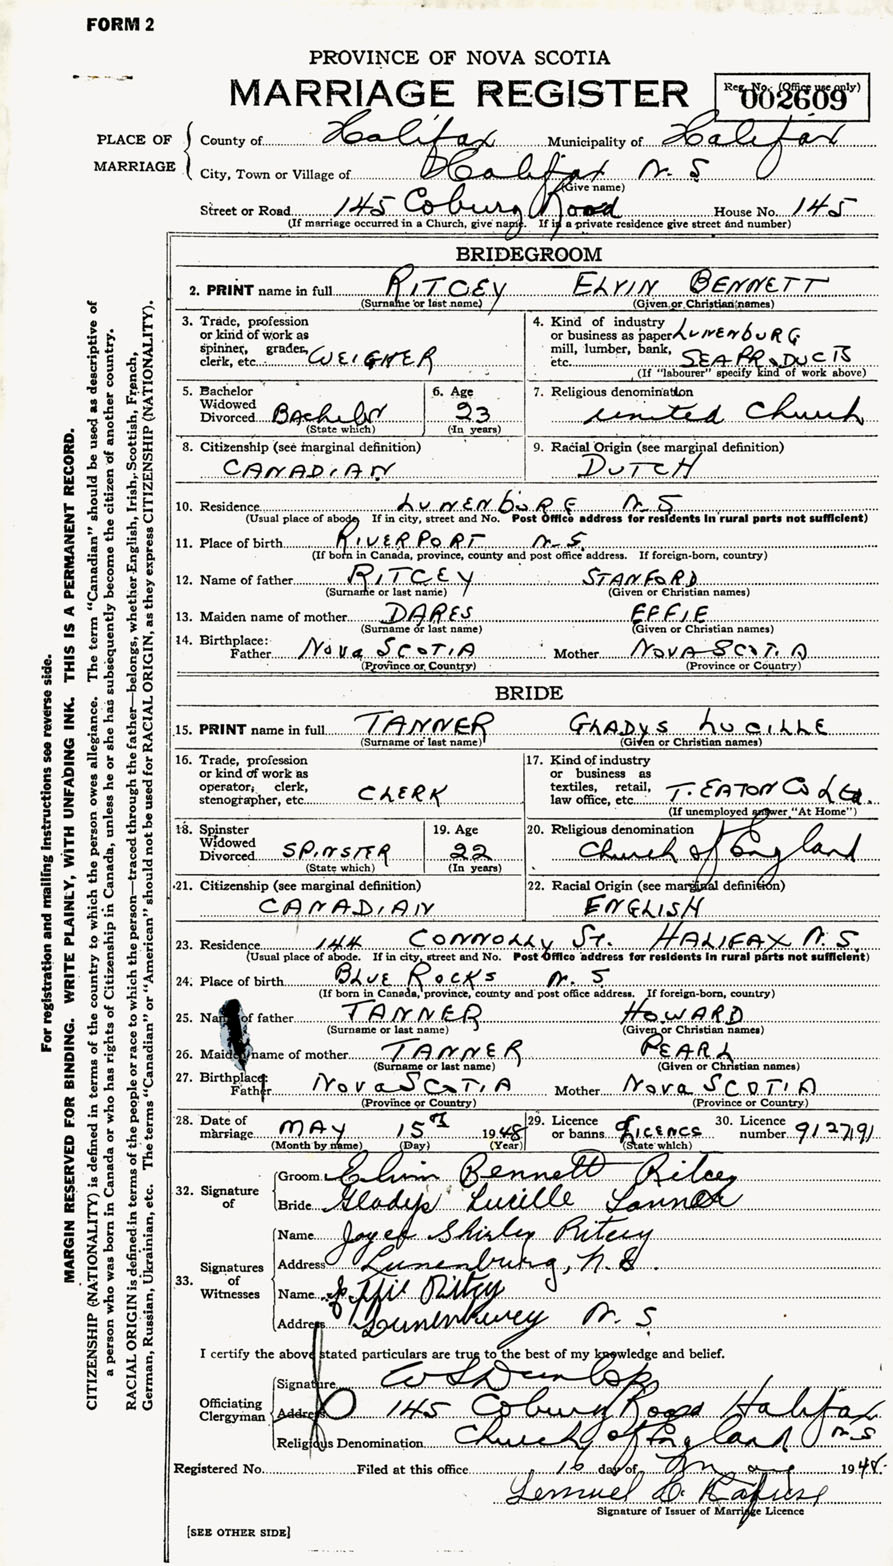 FORM 2
PROVINCE OF NOVA SCOTIA
MARRIAGE REGISTER
Reg. No. (Office use only)
002609
PLACE OF MARRIAGE
County of Halifax Municipality of Halifax
City, Town or Village of Halifax N. S
(Give name)
Street or Road 145 Coburg Road House No. 145
(If marriage occurred in a Church, give name. If in a private residence give street and number)
BRIDEGROOM
2. PRINT name in full RITCEY ELVIN BENNETT
(Surname or last name) (Given or Christian names)
3. Trade, profession or kind of work as spinner, grader, clerk, etc. WEIGHER
4. Kind of industry or business as paper mill, lumber, bank, etc. LUNENBURG SEA PRODUCTS
(If "labourer" specify kind of work above)
5. Bachelor Widowed Divorced Bachelor
(State which)
6. Age 23
(In years)
7. Religious denomination
united Church
8. Citizenship (see marginal definition)
CANADIAN
9. Racial Origin (see marginal definition)
DUTCH
10. Residence LUNENBURG N. S
(Usual place of abode. If in city, street and No. Post Office address for residents in rural parts not sufficient)
11. Place of birth RIVERPORT N. S.
(If born in Canada, province, county and post office address. If foreign-born, country)
12. Name of father RITCEY STANFORD
(Surname or last name) (Given or Christian names)
13. Maiden name of mother DARES EFFIE
(Surname or last name) (Given or Christian names)
14. Birthplace:
Father Nova SCOTIA Mother NOVA SCOTIA
(Province or Country) (Province or Country)
BRIDE
15. PRINT name in full TANNER GLADYS LUCILLE
(Surname or last name) (Given or Christian names)
16. Trade, profession or kind of work as operator, clerk, stenographer, etc. CLERK
17. Kind of industry or business as textiles, retail, law office, etc. T. EATON Co Ltd.
(If unemployed answer "At Home")
18. Spinster Widowed Divorced SPINSTER
(State which)
19. Age 22
(In years)
20. Religious denomination
Church of England
21. Citizenship (see marginal definition)
CANADIAN
22. Racial Origin (see marginal definition)
ENGLISH
23. Residence 144 CONNOLLY St. HALIFAX N. S.
(Usual place of abode. If in city, street and No. Post Office address for residents in rural parts not sufficient)
24. Place of birth BLUE ROCKS N. S
(If born in Canada, province, county and post office address. If foreign-born, country)
25. Name of father TANNER HOWARD
(Surname or last name) (Given or Christian names)
26. Maiden name of mother TANNER PEARL
(Surname or last name) (Given or Christian names)
27. Birthplace:
Father Nova SCOTIA Mother Nova SCOTIA
(Province or Country) (Province or Country)
28. Date of marriage MAY 15 1948
(Month by name) (Day) (Year)
29. Licence or banns Licence
(State which)
30. Licence number 912791
32. Signature of
Groom Elvin Bennett Ritcey
Bride Gladys Lucille Tanner
33. Signatures of Witnesses
Name Joyce Shirley Ritcey
Address Lunenburg, N. S.
Name Effie Ritcey
Address Lunenburg N. S
I certify the above stated particulars are true to the best of my knowledge and belief.
Officiating Clergyman
Signature W S Dunlop
Address 145 Coburg Road Halifax N S
Religious Denomination Church of England
Registered No. Filed at this office 16 day of May 1948.
Lemuel
Signature of Issuer of Marriage Licence
[SEE OTHER SIDE]
For registration and mailing instructions see reverse side.
MARGIN RESERVED FOR BINDING. WRITE PLAINLY, WITH UNFADING INK. THIS IS A PERMANENT RECORD.
CITIZENSHIP (NATIONALITY) is defined in terms of the country to which the person owes allegiance. The term "Canadian" should be used as descriptive of
a person who was born in Canada or who has rights of Citizenship in Canada, unless he or she has subsequently become the citizen of another country.
RACIAL ORIGIN is defined in terms of the people or race to which the person—traced through the father—belongs, whether English, Irish, Scottish, French,
German, Russian, Ukrainian, etc. The terms "Canadian" or "American" should not be used for RACIAL ORIGIN, as they express CITIZENSHIP (NATIONALITY).